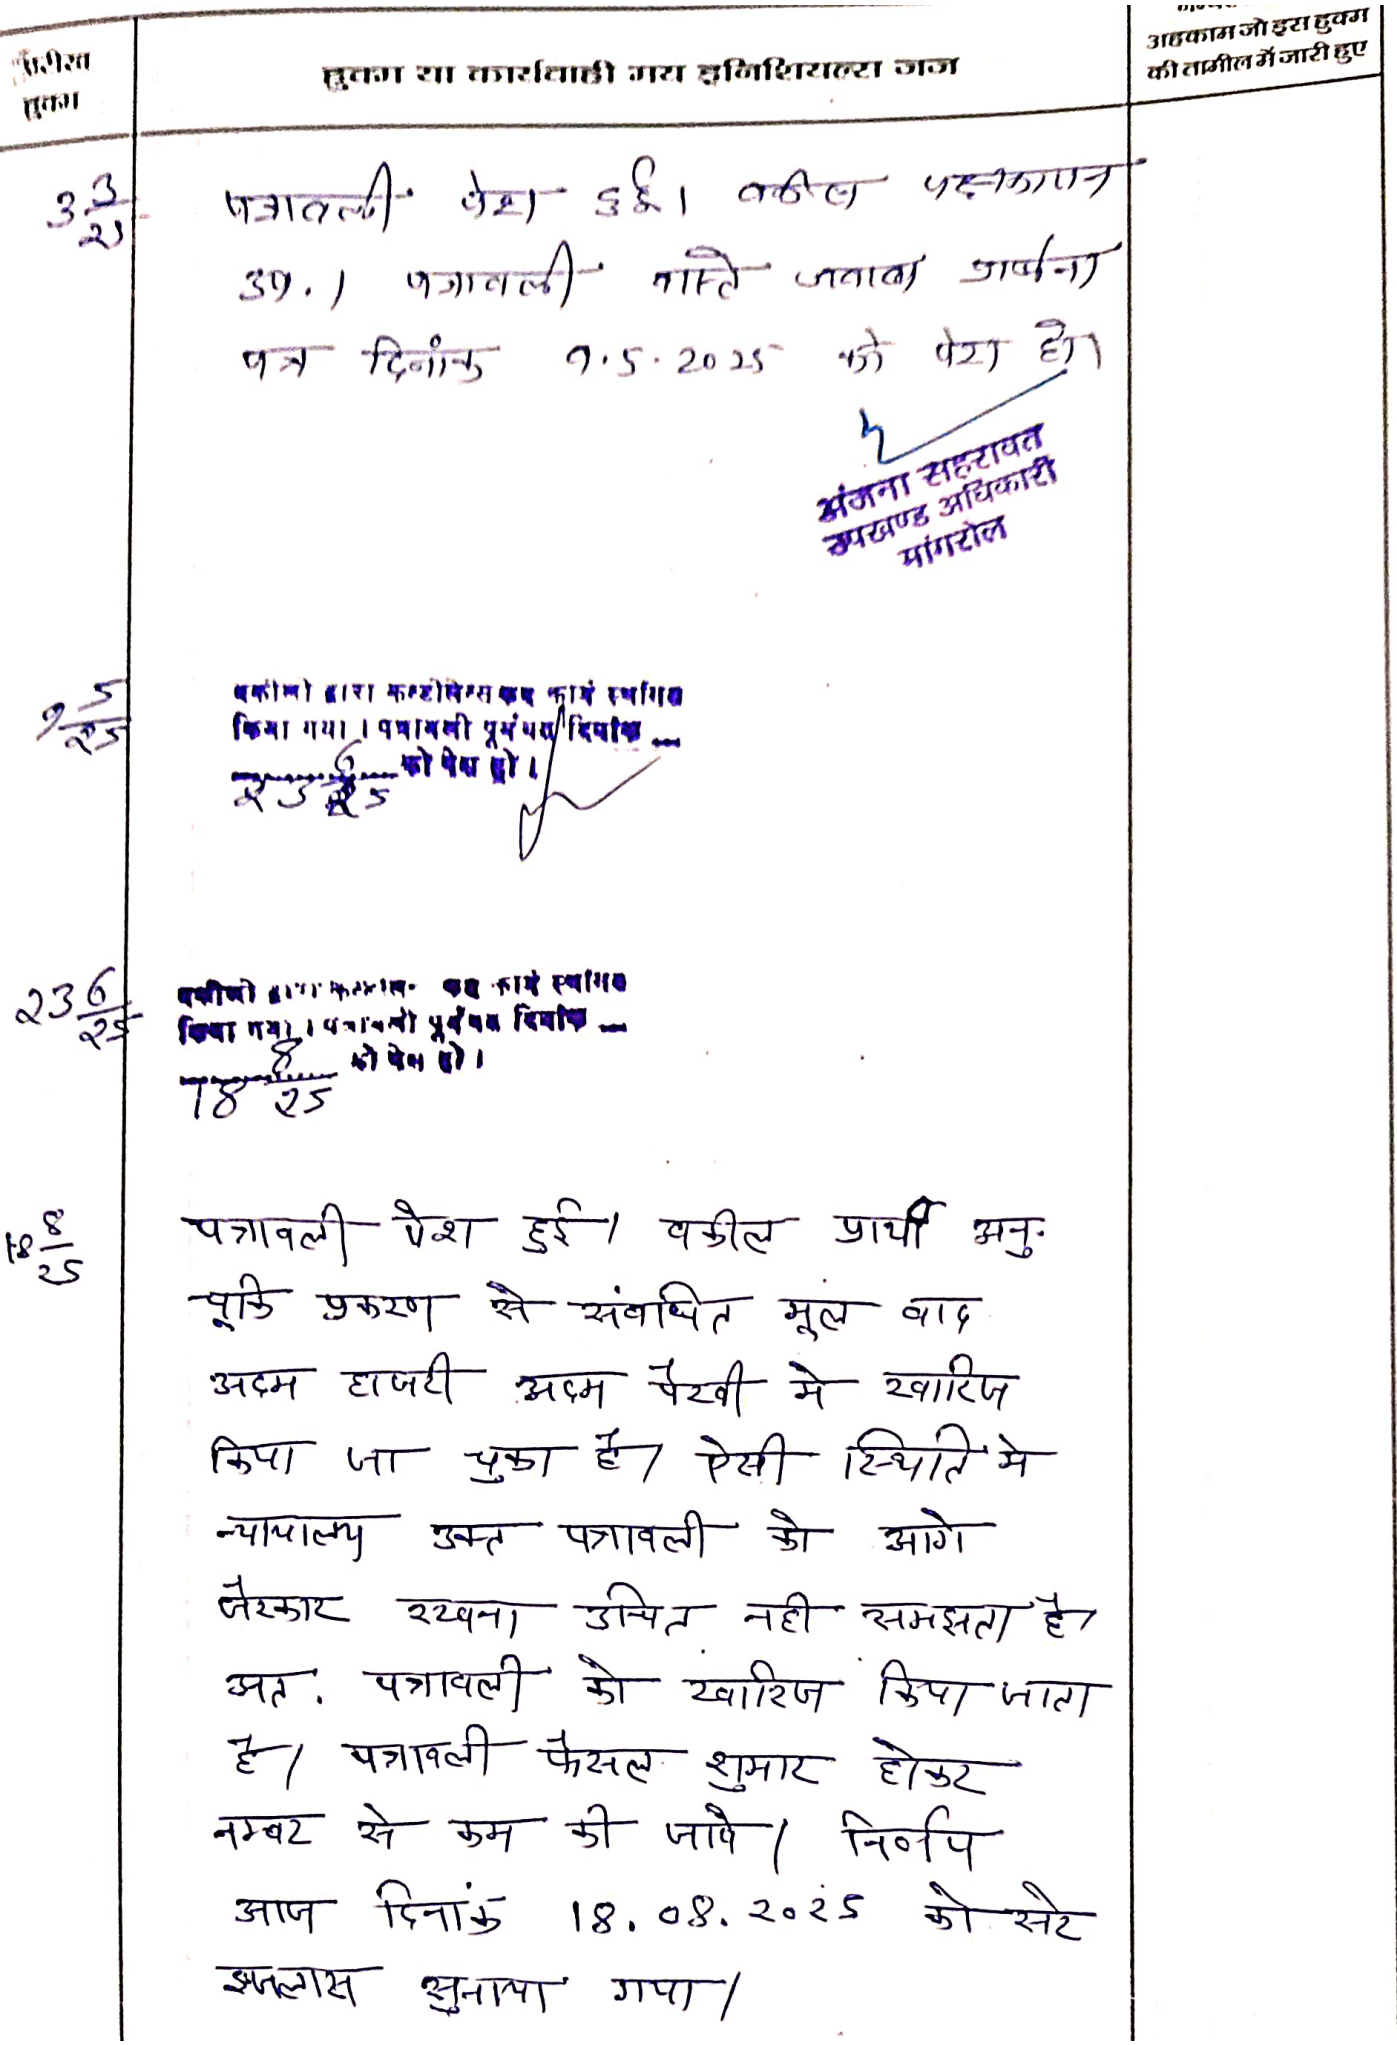 तारीख हुक्म
हुक्म या कार्यवाही मय इनिशियल्स जज
अहकाम जो इस हुक्म
की तामील में जारी हुए
3 3/25
पत्रावली पेश हुई। वकील पक्षकारान
उप.। पत्रावली वास्ते जवाब प्रार्थना
पत्र दिनांक 9.5.2025 को पेश हो।
अंजना सहरावत
उपखण्ड अधिकारी
मांगरोल
9 5/25
वकीलो द्वारा कन्डोलेन्स कर कार्य स्थगित
किया गया। पत्रावली पूर्ववत दिनांक ....
23 6/25 को पेश हो।
23 6/25
वकीलो द्वारा कर कार्य स्थगित
किया गया। पत्रावली पूर्ववत दिनांक ....
18 8/25 को पेश हो।
18 8/25
पत्रावली पेश हुई। वकील प्रार्थी अनु.
चूकि प्रकरण से संबंधित मूल वाद
अदम हाजरी अदम पैरवी मे खारिज
किया जा चुका है। ऐसी स्थिति मे
न्यायालय उक्त पत्रावली को आगे
जैरकार रखना उचित नही समझता है।
अत. पत्रावली को खारिज किया जाता
है। पत्रावली फैसल शुमार होकर
नम्बर से कम की जावे। निर्णय
आज दिनांक 18.08.2025 को सरे
इजलास सुनाया गया।